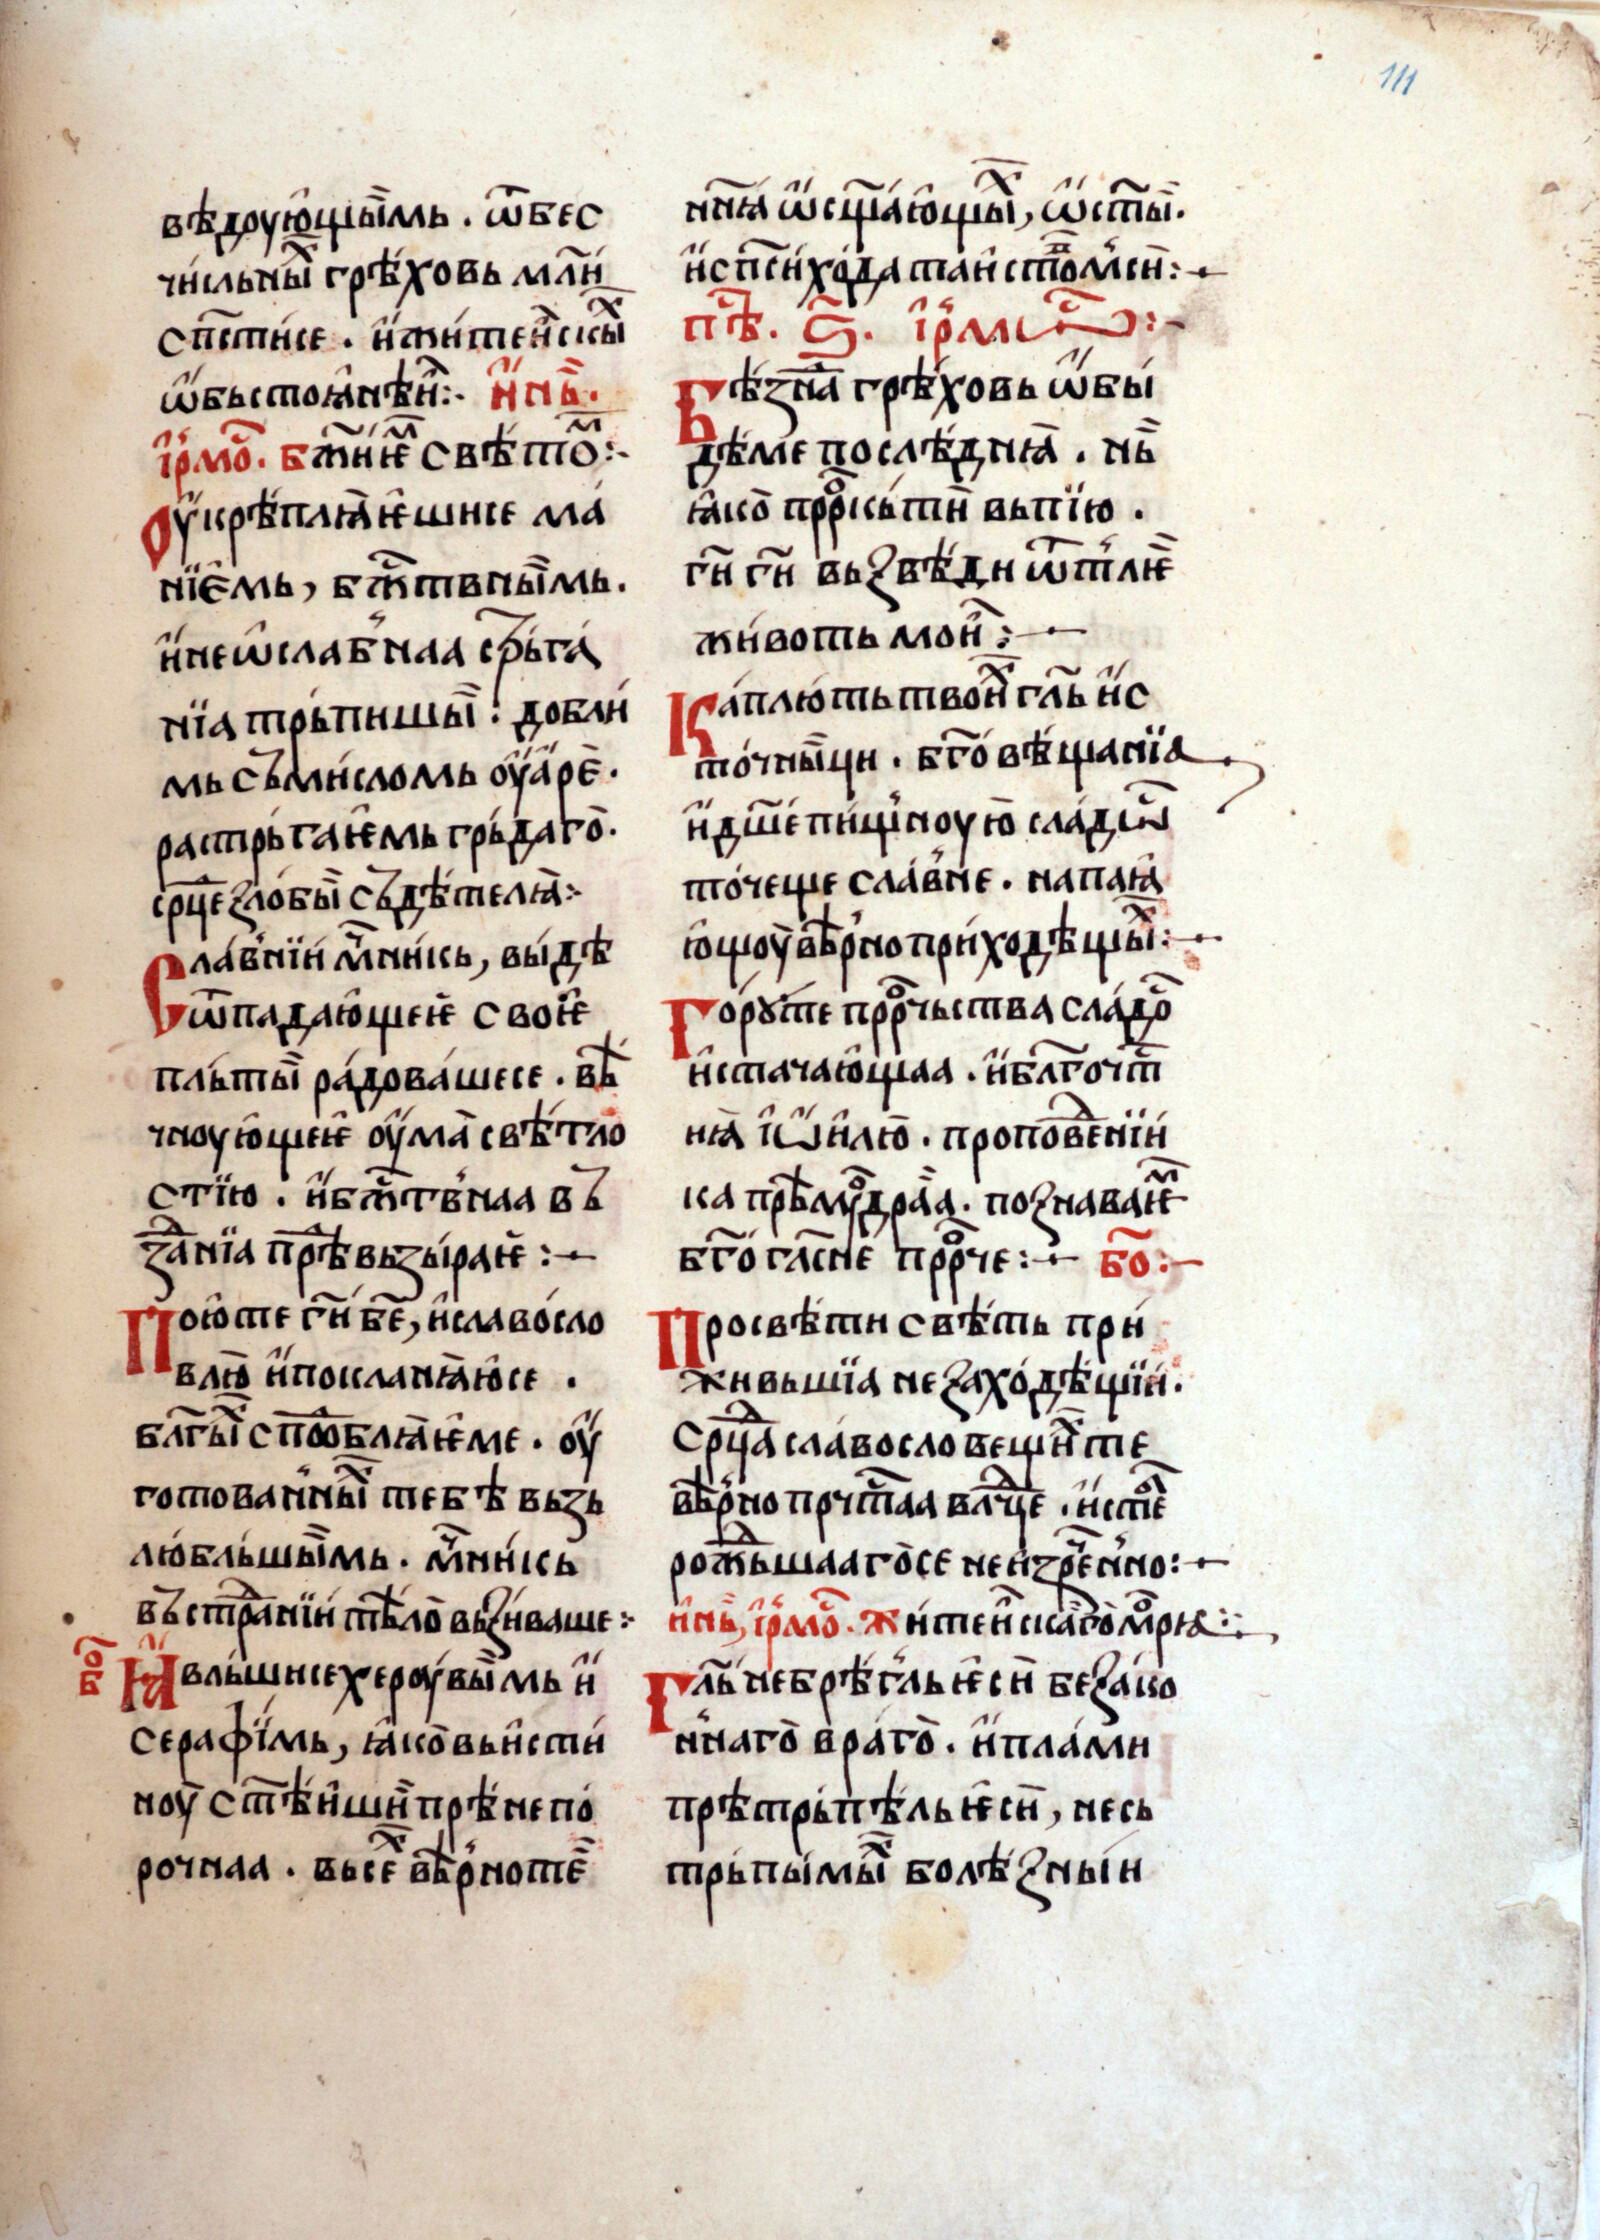 111
вѣдоую҆щы̏мь . ѿбес
чи́сльны̏х грѣ́ховь мл҃ни
сп҃сти́се . и҆жите́и҆скы̏х
ѡ҆бьстоꙗ҆нѣи҆ :· и҆ нн҃ѣ .
і҆рмо҃с . бж҃нїѥ свѣто҃м :·
Оу҆крѣплꙗ҆ѥ҆шисе ма́
нїѥ҆мь , бж҃ствны̏мь .
и҆неѡ҆слабнаа стрьга́
нїа трьпишы̏ : доблы́
мь съмы́сломь оу҆а҆ре̏ .
растрьгаѥ҆мь грь́даго̏ .
ср҃це зло́бы̏ съдѣ́телꙗ :·
Сла́внїи мч҃ни́кь , вы́дѣ
ѿпадаю҆щеѥ҆ своѥ҆
пль́ты̏ ра́дова́шесе . вѣ́
чноую҆щеѥ҆ оу҆ма̏ свѣ́тло
стїю . и҆бж҃ствнаа въ
зда҃нїа прѣ́вьзы́раѥ҆ :—
Пою҆те гн҃и бе҃ , и҆славо́сло
влю̏ и҆покланꙗ҆юсе .
бл҃гы̏х спо҃облꙗ҆ѥ҆ме . оу҆
готова́нны̏х тебѣ вьзь
лю́бльшы̏мь . мч҃ни́кь
въстра҃нїи тѣло̏ вьзи́ваше :·
бо҃г
Ꙗ҆вльшисе хероувы̏мь и҆
серафі́мь , ꙗ҆ко̏ вьи҆сти́
ноу̏ ст҃ѣи҆шы̏ прѣ́непо́
рочнаа . вьсе̏х вѣ́рноте̏
нн҃ꙗ ѡ҆сщ҃аю҆щы̏х , ѡ҆ст҃ы̏ .
и҆сп҃си и҆хо́датаи҆ство҃м си :—
пѣ҃с . ѕ҃ . і҆рмѡ҃с :~
Бѣ́зна грѣ́ховь ѡ҆бы́
дѣ́ме послѣ́днꙗ̏ . нь̏
ꙗ҆ко̏ пр҃окь ти̏ вьпїю .
гн҃и гн҃и вьзвѣ́ди ѿтлѥ̏
жи́воть мои҆ :—
Ка́плю́ть твои̏х гл҃ь и҆с
то́чны̏ци . бг҃овѣ́щанїа
и҆дш҃епи́щноую̏ сла́дѡс
то́чеще сла́вне . напаꙗ҆
ю҆щоу̏ вѣ́рно при́ходѣщы̏х :—
Го́руте пр҃очьства сла́до̏с
и҆стачаю҆щаа . и҆бл҃гочт҃
нꙗ̏ і҆ѡ҆и́лю̏ . пропове́нїи
ка прѣ́моудра̏а . познаваѥ̏м
бг҃огл҃сне́ пр҃оче :— бо҃ :—
Просвѣ́ти свѣ́ть при́
живьшїа незахо́дѣщїи .
Ср҃ца сла́вословещи̏х те
вѣ́рно прч҃таа вл҃чце . и҆с те̏
рож҃ьшааго̏се неи́зре́нно :—
и҆ нн҃ѣ , і҆рмо҃с . жите́и҆ска̏го̏ мо҃рꙗ :·
Гл҃ь небрѣ́гль ѥ҆си̏ беза́ко
ннаго̏ вра́го̏ . и҆пла́ми
прѣ́трьпѣ́ль ѥ҆си̏ , несь
трьпы́мы̏х болѣ́зныи